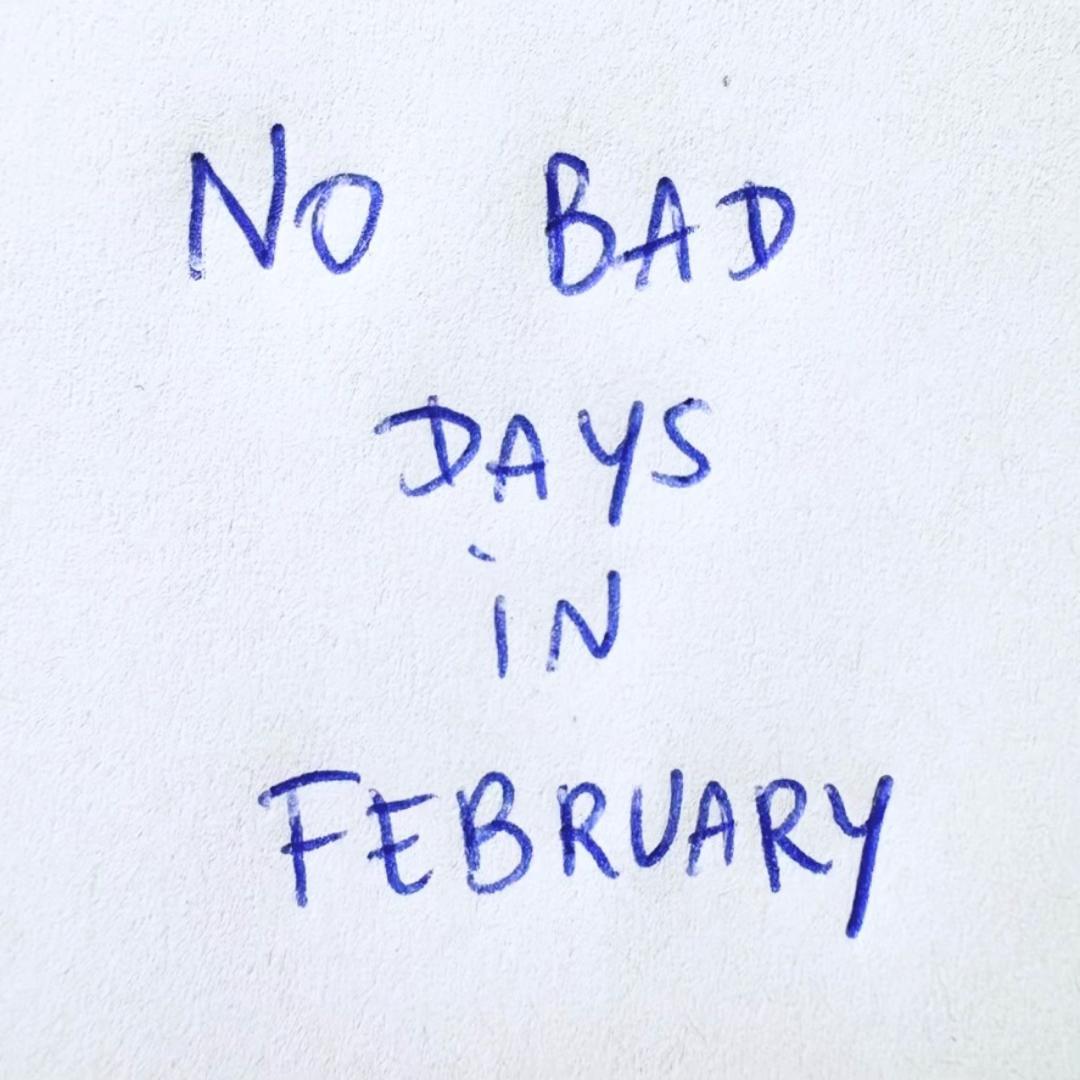 NO BAD
DAYS
iN
FEBRUARY